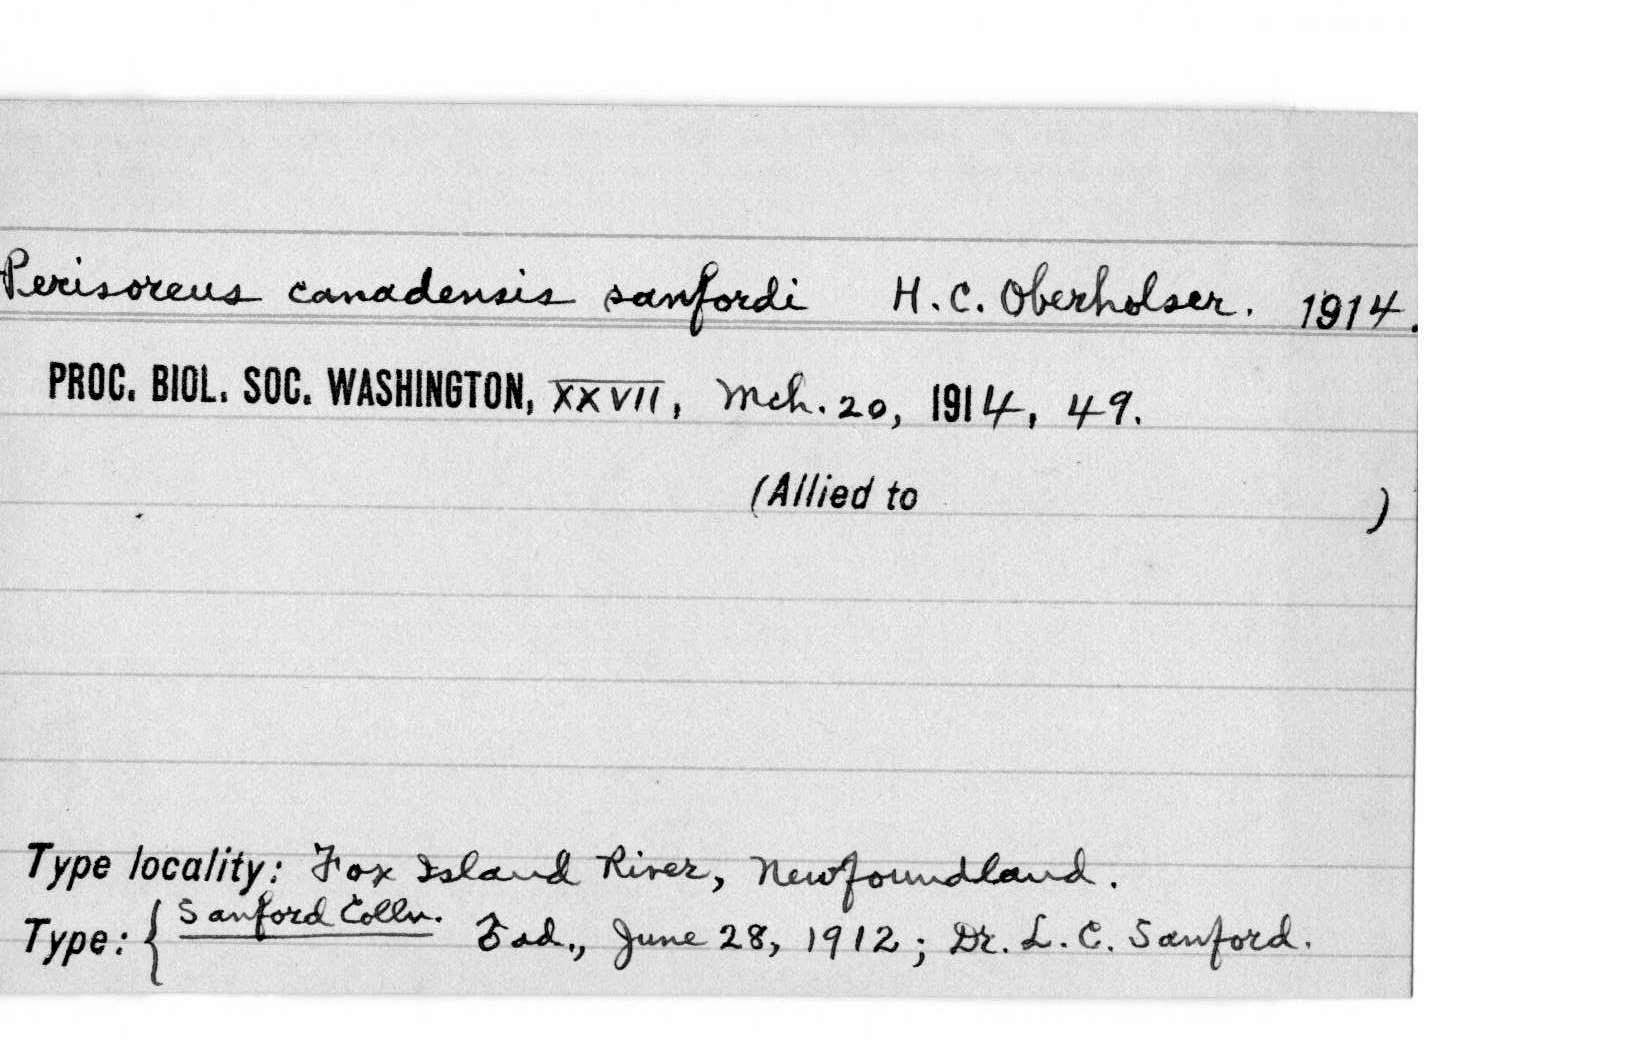 Perisoreus canadensis sanfordi H. C. Oberholser. 1914.
PROC. BIOL. SOC. WASHINGTON, XXVII, Mch. 20, 1914, 49.
(Allied to )
Type locality: Fox Island River, Newfoundland.
Type: { Sanford Colln. ad., June 28, 1912; Dr. L. C. Sanford.